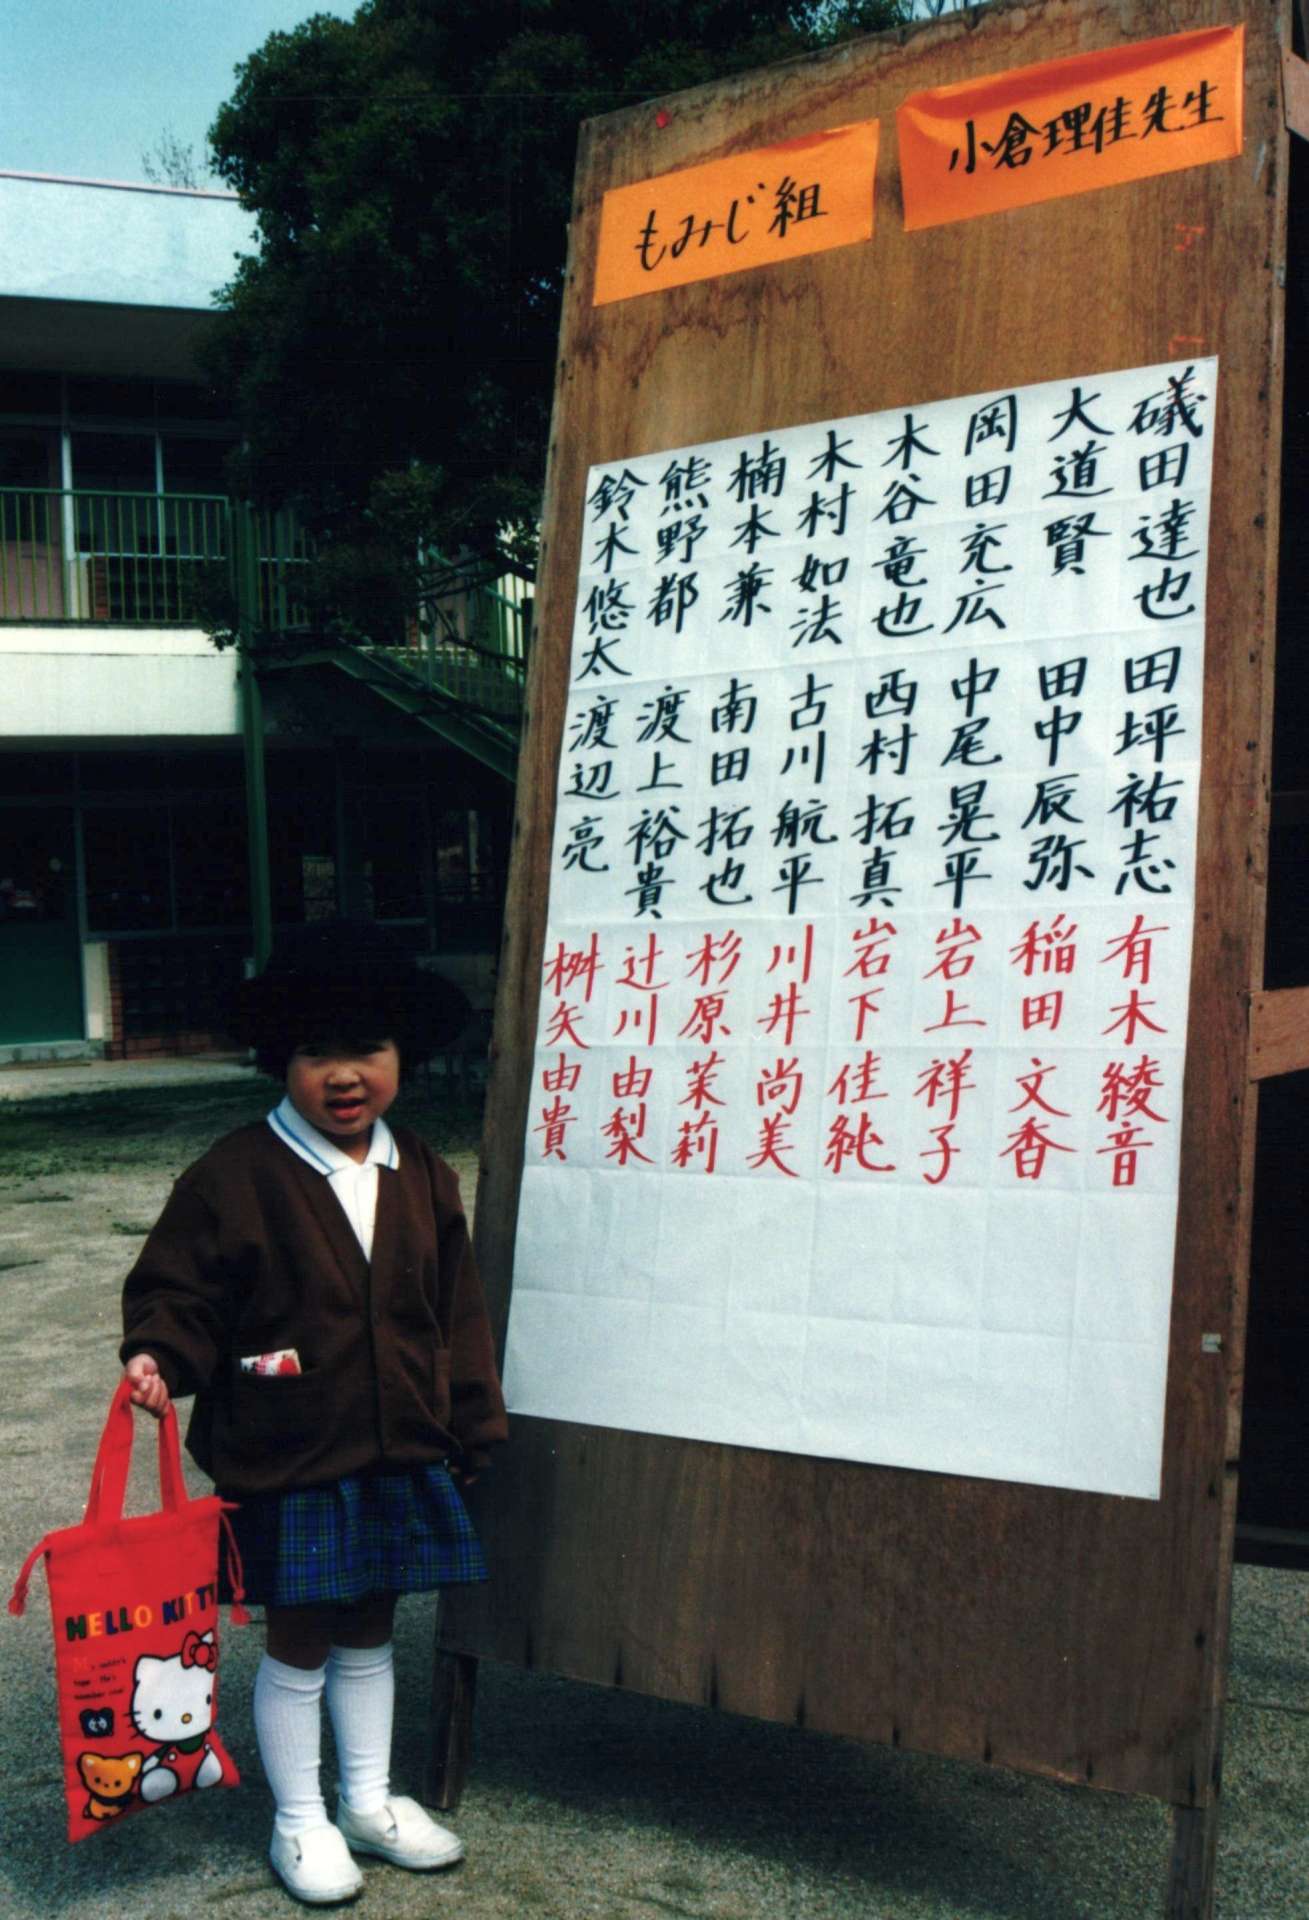 もみじ組
小倉理佳先生
礒田達也
大道賢
岡田充広
木谷竜也
木村如法
楠本兼
熊野都
鈴木悠太
田坪祐志
田中辰弥
中尾晃平
西村拓真
古川航平
南田拓也
渡上裕貴
渡辺亮
有木綾音
稲田文香
岩上祥子
岩下佳純
川井尚美
杉原茉莉
辻川由梨
桝矢由貴
HELLO KITTY